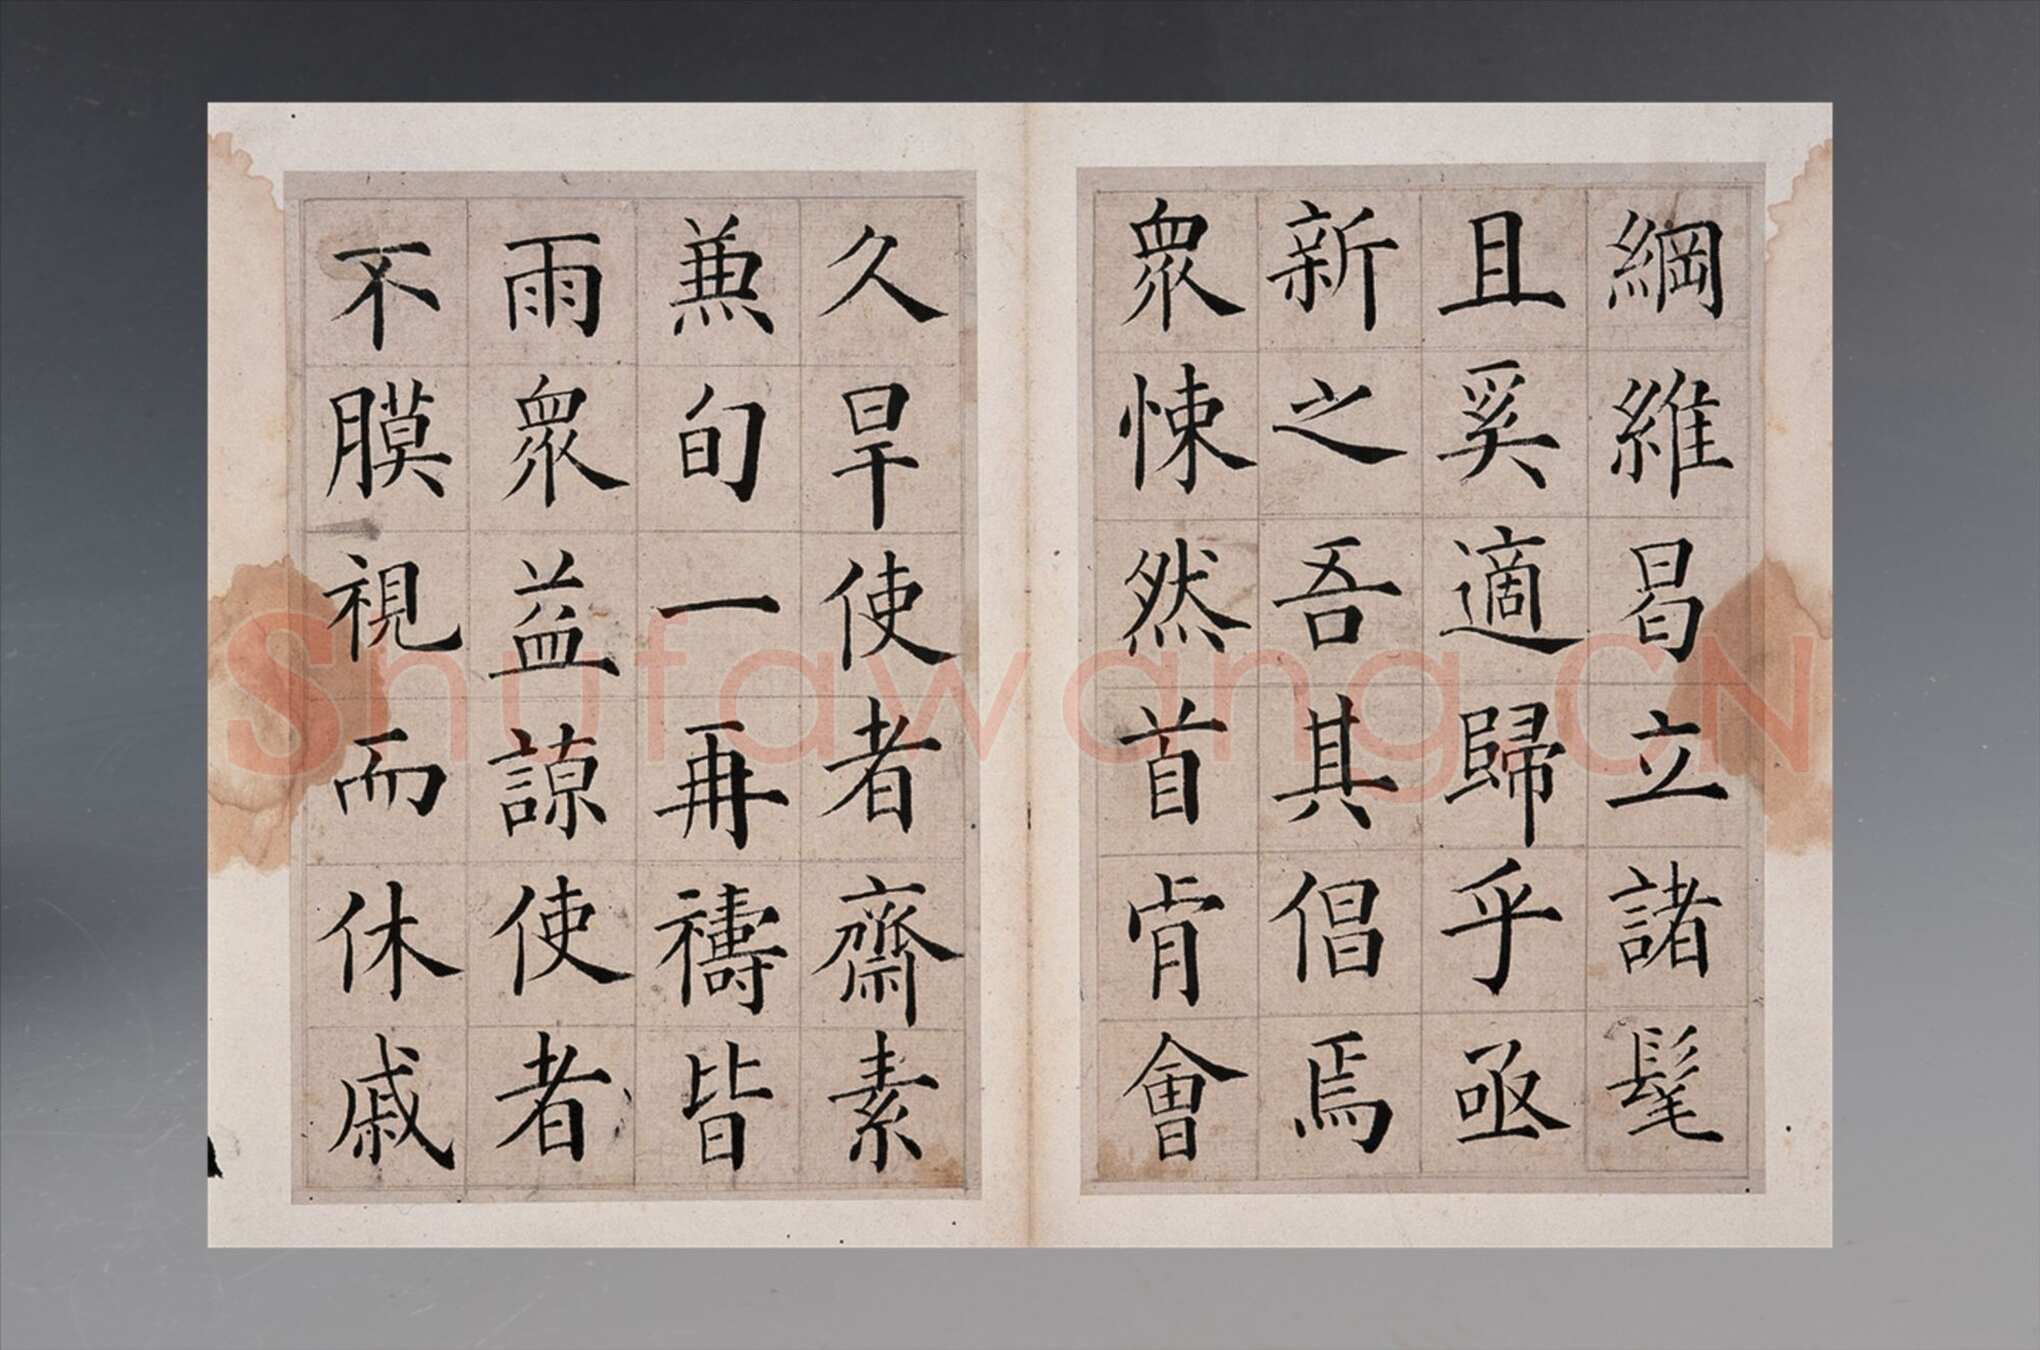 綱維曷立諸髦
且奚適歸乎亟
新之吾其倡焉
衆悚然首肯會
久旱使者齋素
兼旬一再禱皆
雨衆益諒使者
不膜視而休戚
Shufawang.CN